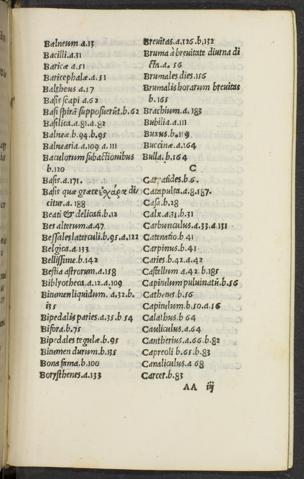 Balneum a.13
Bacilli.a.31
Baricæ a.51
Baricephalæ.a.51
Baltheus a.17
Basis scapi a.62
Basi spiræ supposuerũt.b.62
Basilica.a.81.a.82
Balneæ b.94.b.95
Balnearia.a.109 a.111
Baculorum subactionibus
b.120
Basis.a.171.
Basis quæ græce di-
citur.a.188
Beati & delicati.b.12
Bes alterum.a.47
Bessales laterculi.b.95.a.122
Belgica.a.133
Bellissime.b.142
Bestia astrorum.a.158
Biblyotheca.a.12.a.109
Bitumen liquidum.a.32.b.
135
Bipedalis paries.a.35.b 54
Bifora.b.75
Bipedales tegulæ.b.95
Bitumen durum.b.135
Bona firma.b.100
Borysthenes.a.133
Breuitas.a.126.b.132
Bruma à breuitate diurna di
cta.a.56
Brumales dies.156
Brumalis horarum breuitas
b.165
Brachium.a.183
Bubilia.a.111
Buxus.b.119
Buccinæ.a.164
Bulla.b.164
C
Caryatides.b.6.
Catapultæ.a.8.187.
Casa.b.28
Calx.a.31.b.31
Carbunculus.a.33.a.131
Catenatio.b.41
Carpinus.b.41
Caries.b.42.a.42
Castellum a.42.b.185
Capitulum puluinatũ.b.56
Cathetus b.56
Capitulum.b.50.a.16
Calathus b.64
Cauliculus.a.64
Cantherius.a.66.b.82
Capreoli b.65.b.83
Canaliculus.a 68
Carcer.b.83
AA iij